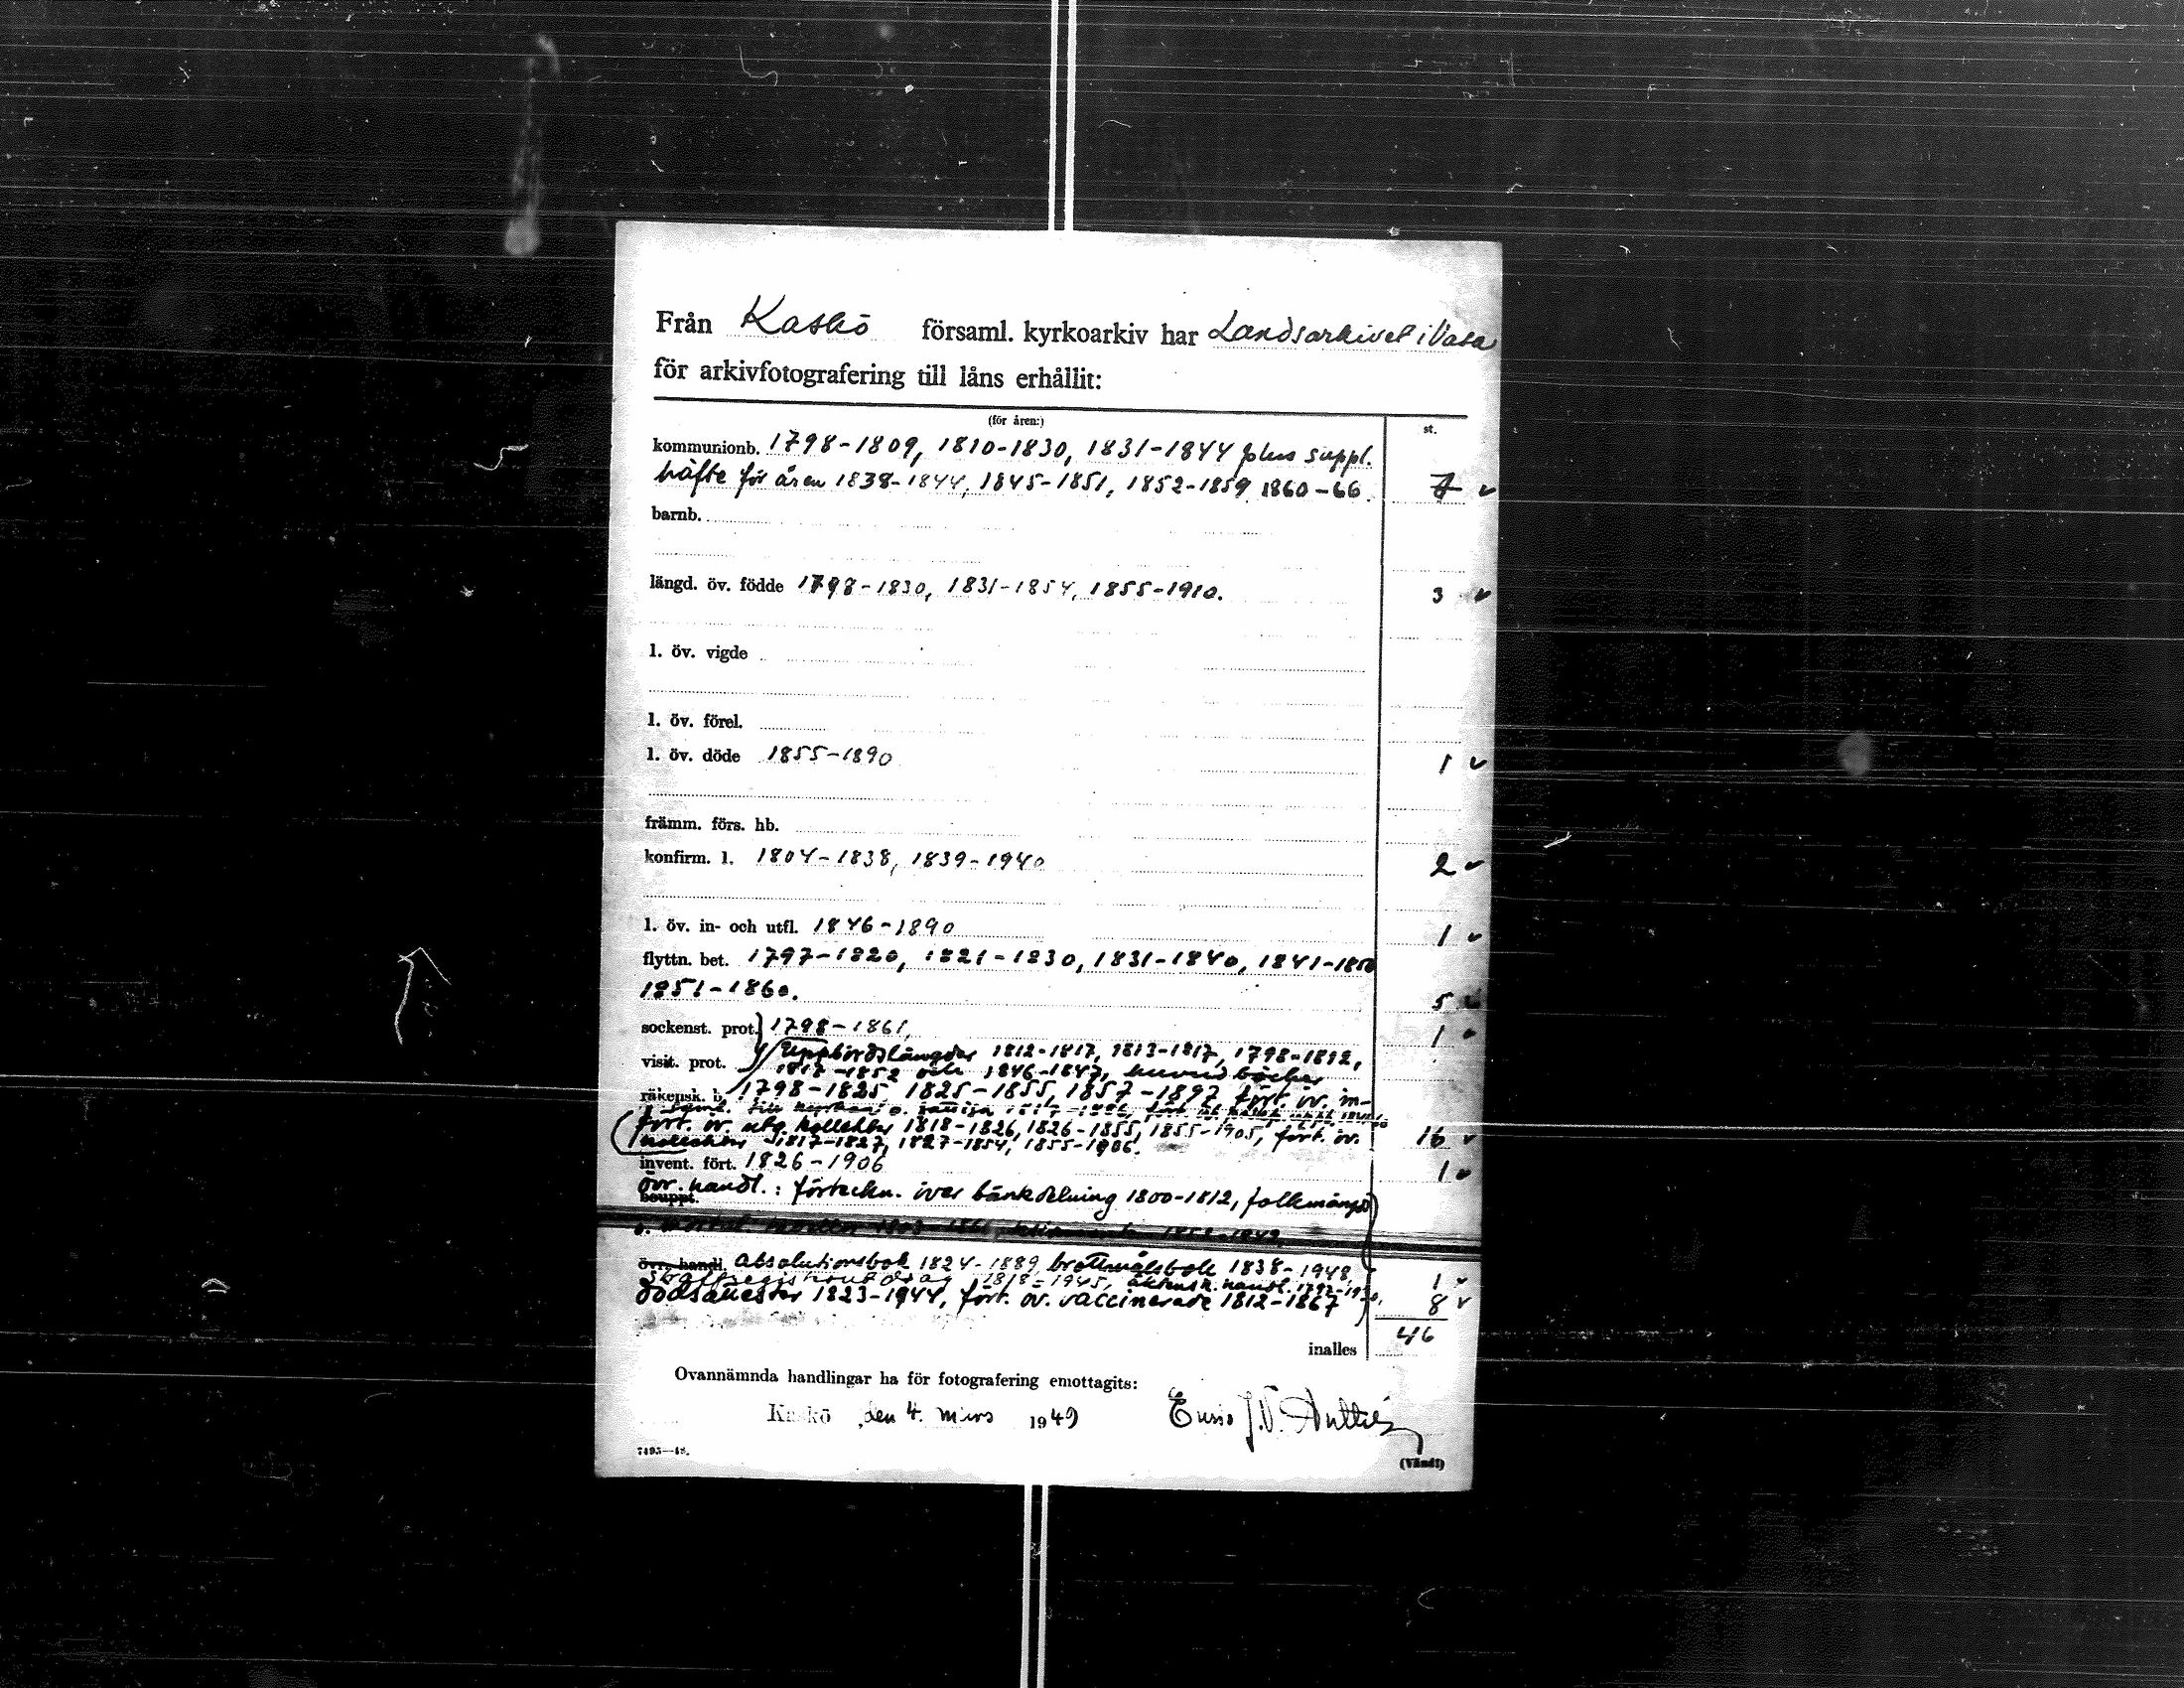 Från Kaskö församl. kyrkoarkiv har Landsarkivet i Vasa
för arkivfotografering till låns erhållit:
(för åren:) st.
kommunionb. 1798-1809, 1810-1830, 1831-1844 plus suppl.
häfte för åren 1838-1844, 1845-1851, 1852-1859, 1860-66. 7
barnb.
längd. öv. födde 1798-1830, 1831-1854, 1855-1910. 3
l. öv. vigde
l. öv. förel.
l. öv. döde 1855-1890 1
främm. förs. hb.
konfirm. l. 1804-1838, 1839-1940 2
l. öv. in- och utfl. 1846-1890 1
flyttn. bet. 1797-1820, 1821-1830, 1831-1840, 1841-1850
1851-1860. 5
sockenst. prot. 1798-1861, 1
visit. prot. Uppbördslängder 1812-1817, 1813-1817, 1798-1812,
1817-1852 och 1846-1847, huvudböcker
räkensk. b. 1798-1825, 1825-1855, 1857-1897, fört. öv. in-
saml. till kyrkan o.
fört. öv. utg. kollekter 1818-1826, 1826-1855, 1855-1905, fört. öv. 16
kollekter 1817-1827, 1827-1854, 1855-1906.
invent. fört. 1826-1906 1
övr. handl.: förteckn. över bänkdelning 1800-1812, folkmängd
bouppt.
övr. handl. absolutionsbok 1824-1889, brottmålsbok 1838-1948, 1
straffregisterutdrag 1818-1945, äktensk. handl.
dödsattester 1823-1944, fört. öv. vaccinerade 1812-1867 8
inalles 46
Ovannämnda handlingar ha för fotografering emottagits:
Kaskö, den 4. mars 1949
7495—48. (Vänd!)